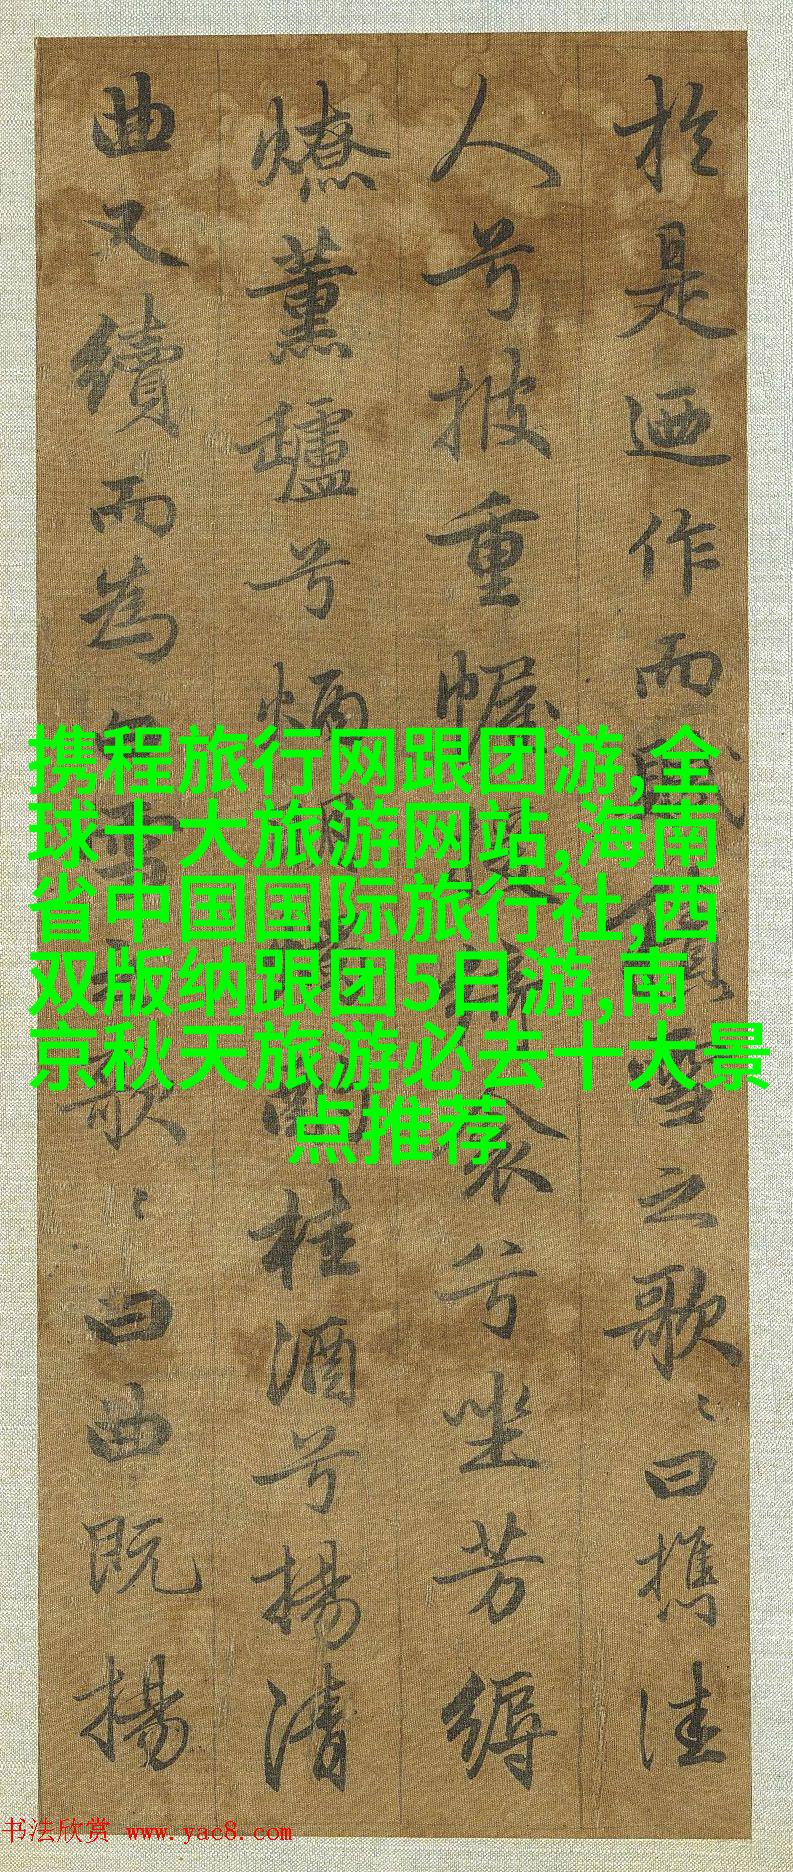 於是迺作而賦積雪之歌〻曰攜佳
人兮披重幄援綺衾兮坐芳縟
燎薰罏兮炳明燭酌桂酒兮揚清
曲又續而為白雪之歌〻曰曲既揚
携程旅行网跟团游,全
球十大旅游网站,海南
省中国国际旅行社,西
双版纳跟团5日游,南
京秋天旅游必去十大景
点推荐
书法欣赏 www.yac8.com